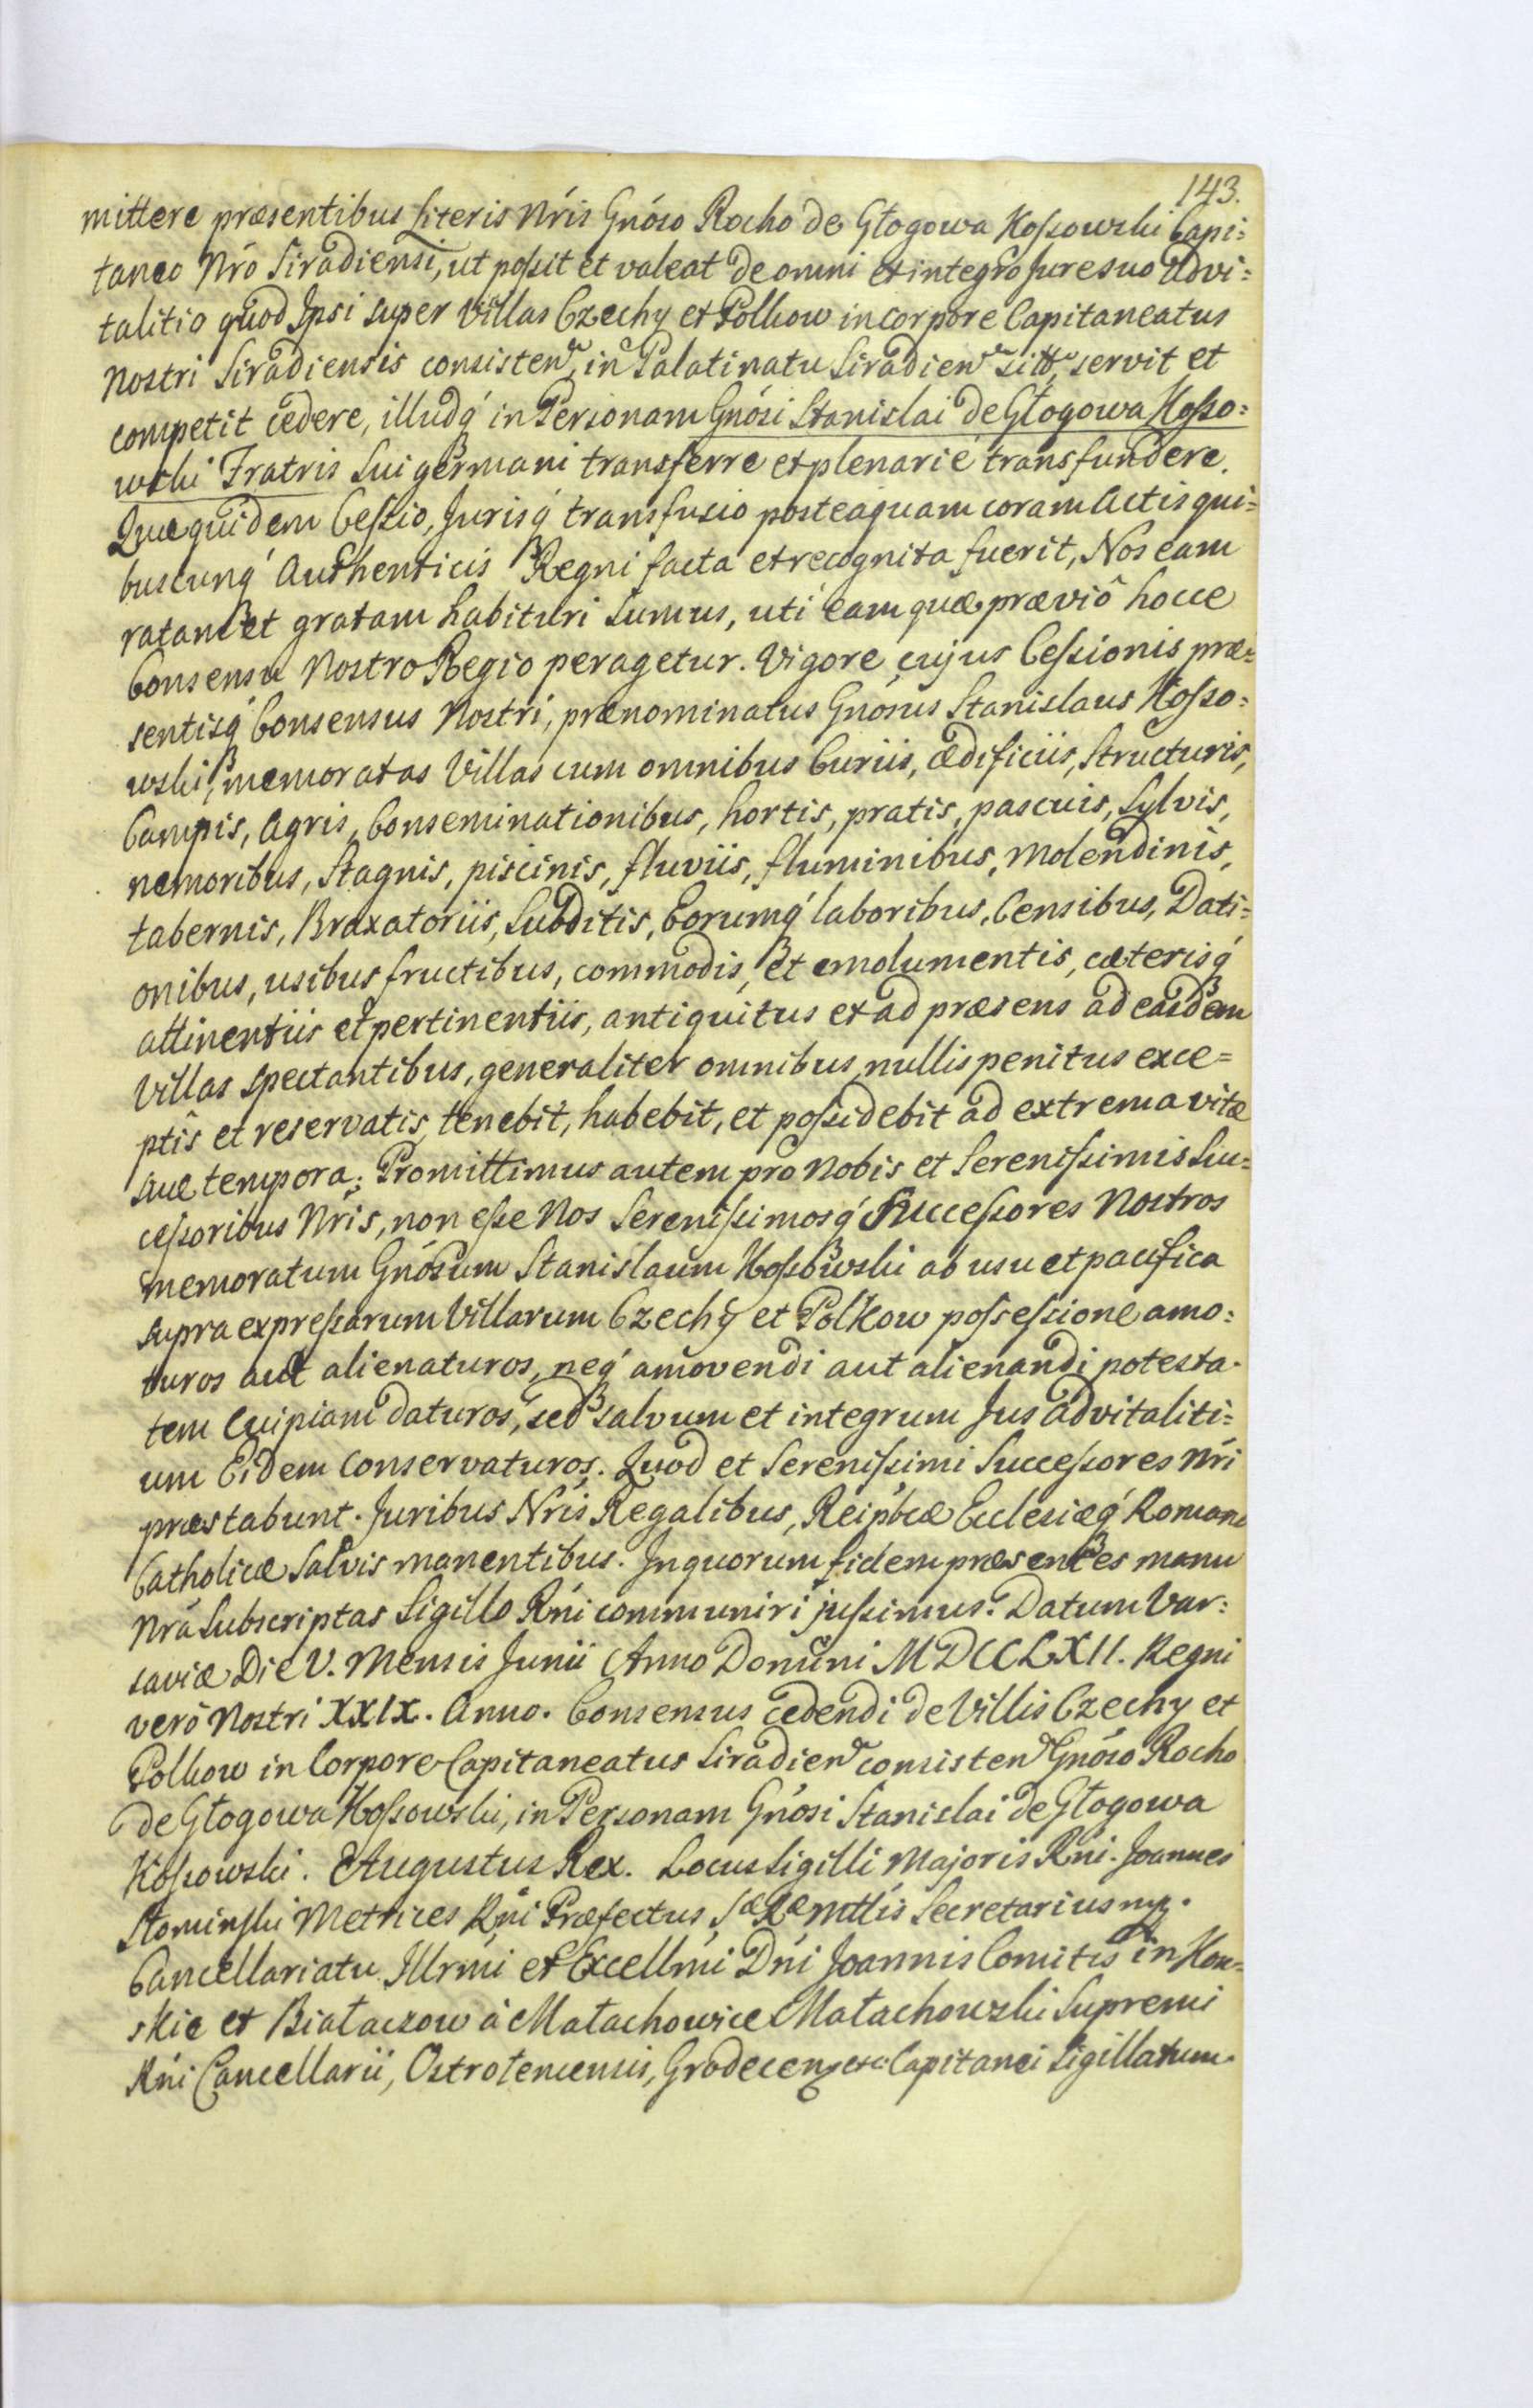 143.
mittere præsentibus Literis Nŕis Gnóso Rocho de Głogowa Koſsowski Capi:
taneo Nŕo Siradiensi, ut poſsit et valeat de omni et integro Jure suo advi:
talitio quod Ipsi super Villas Czechy et Polkow in corpore Capitaneatus
Nostri Siradiensis consisten, in Palatinatu Siradien sitt, servit et
competit cedere, illudq́ in Personam Gnósi Stanislai de Głogowa Koſso:
wski Fratris Sui germani transferre et plenarie transfundere.
Quæ quidem Ceſsio, Jurisq́ transfusio posteaquam coram Actis qui:
buscunq́ Authenticis Regni facta et recognita fuerit, Nos eam
ratam et gratam habituri sumus, uti eam quæ præviô hocce
Consensu Nostro Regio peragetur. Vigore cujus Ceſsionis præ:
sentisq́ Consensus Nostri, prænominatus Gnósus Stanislaus Koſso:
wski, memoratas Villas cum omnibus Curiis, ædificiis, Structuris,
Campis, Agris, Conseminationibus, hortis, pratis, pascuis, Sylvis,
nemoribus, Stagnis, piscinis, fluviis, fluminibus, Molendinis,
tabernis, Braxatoriis, Subditis, Eorumq́ laboribus, Censibus, Dati:
onibus, usibus fructibus, commodis, et emolumentis, cæterisq́
attinentiis et pertinentiis, antiquitus et ad præsens ad easdem
Villas spectantibus, generaliter omnibus nullis penitus exce=
ptis et reservatis, tenebit, habebit, et poſsidebit ad extrema vitæ
suæ tempora; Promittimus autem pro Nobis et Sereniſsimis Suc:
ceſsoribus Nŕis, non eſse Nos Sereniſsimosq́ Succeſsores Nostros
memoratum Gnósum Stanislaum Koſsowski ab usu et pacifica
supra expreſsarum Villarum Czechy et Polkow poſseſsione amo:
turos aut alienaturos, neq́ amovendi aut alienandi potesta:
tem Cuipiam daturos, sed salvum et integrum Jus advitaliti:
um Eidem conservaturos. Quod et Sereniſsimi Succeſsores Nŕi
præstabunt. Juribus Nŕis Regalibus, Reipbcæ Ecclesiæq́ Romanæ
Catholicæ Salvis manentibus. In quorum fidem præsentes manu
Nŕa Subscriptas Sigillo Rńi communiri juſsimus. Datum Var:
saviæ Die V. Mensis Junii Anno Domini MDCCLXII. Regni
verò Nostri XXIX. Anno. Consensus cedendi de Villis Czechy et
Polkow in Corpore Capitaneatus Siradien consisten Gnóso Rocho
de Głogowa Koſsowski, in Personam Gnósi Stanislai de Głogowa
Koſsowski. Augustus Rex. Locus Sigilli Majoris Rńi. Joannes
Słominski Metrices Rńi Præfectus, Sæ Ræ Mttis Secretarius mp.
Cancellariatu Illrmi et Excellmi Dńi Joannis Comitis in Kon=
skie et Białaczow à Małachowice Małachowski Supremi
Rńi Cancellarii, Ostrołencensis, Grodecen etc: Capitanei Sigillatum.